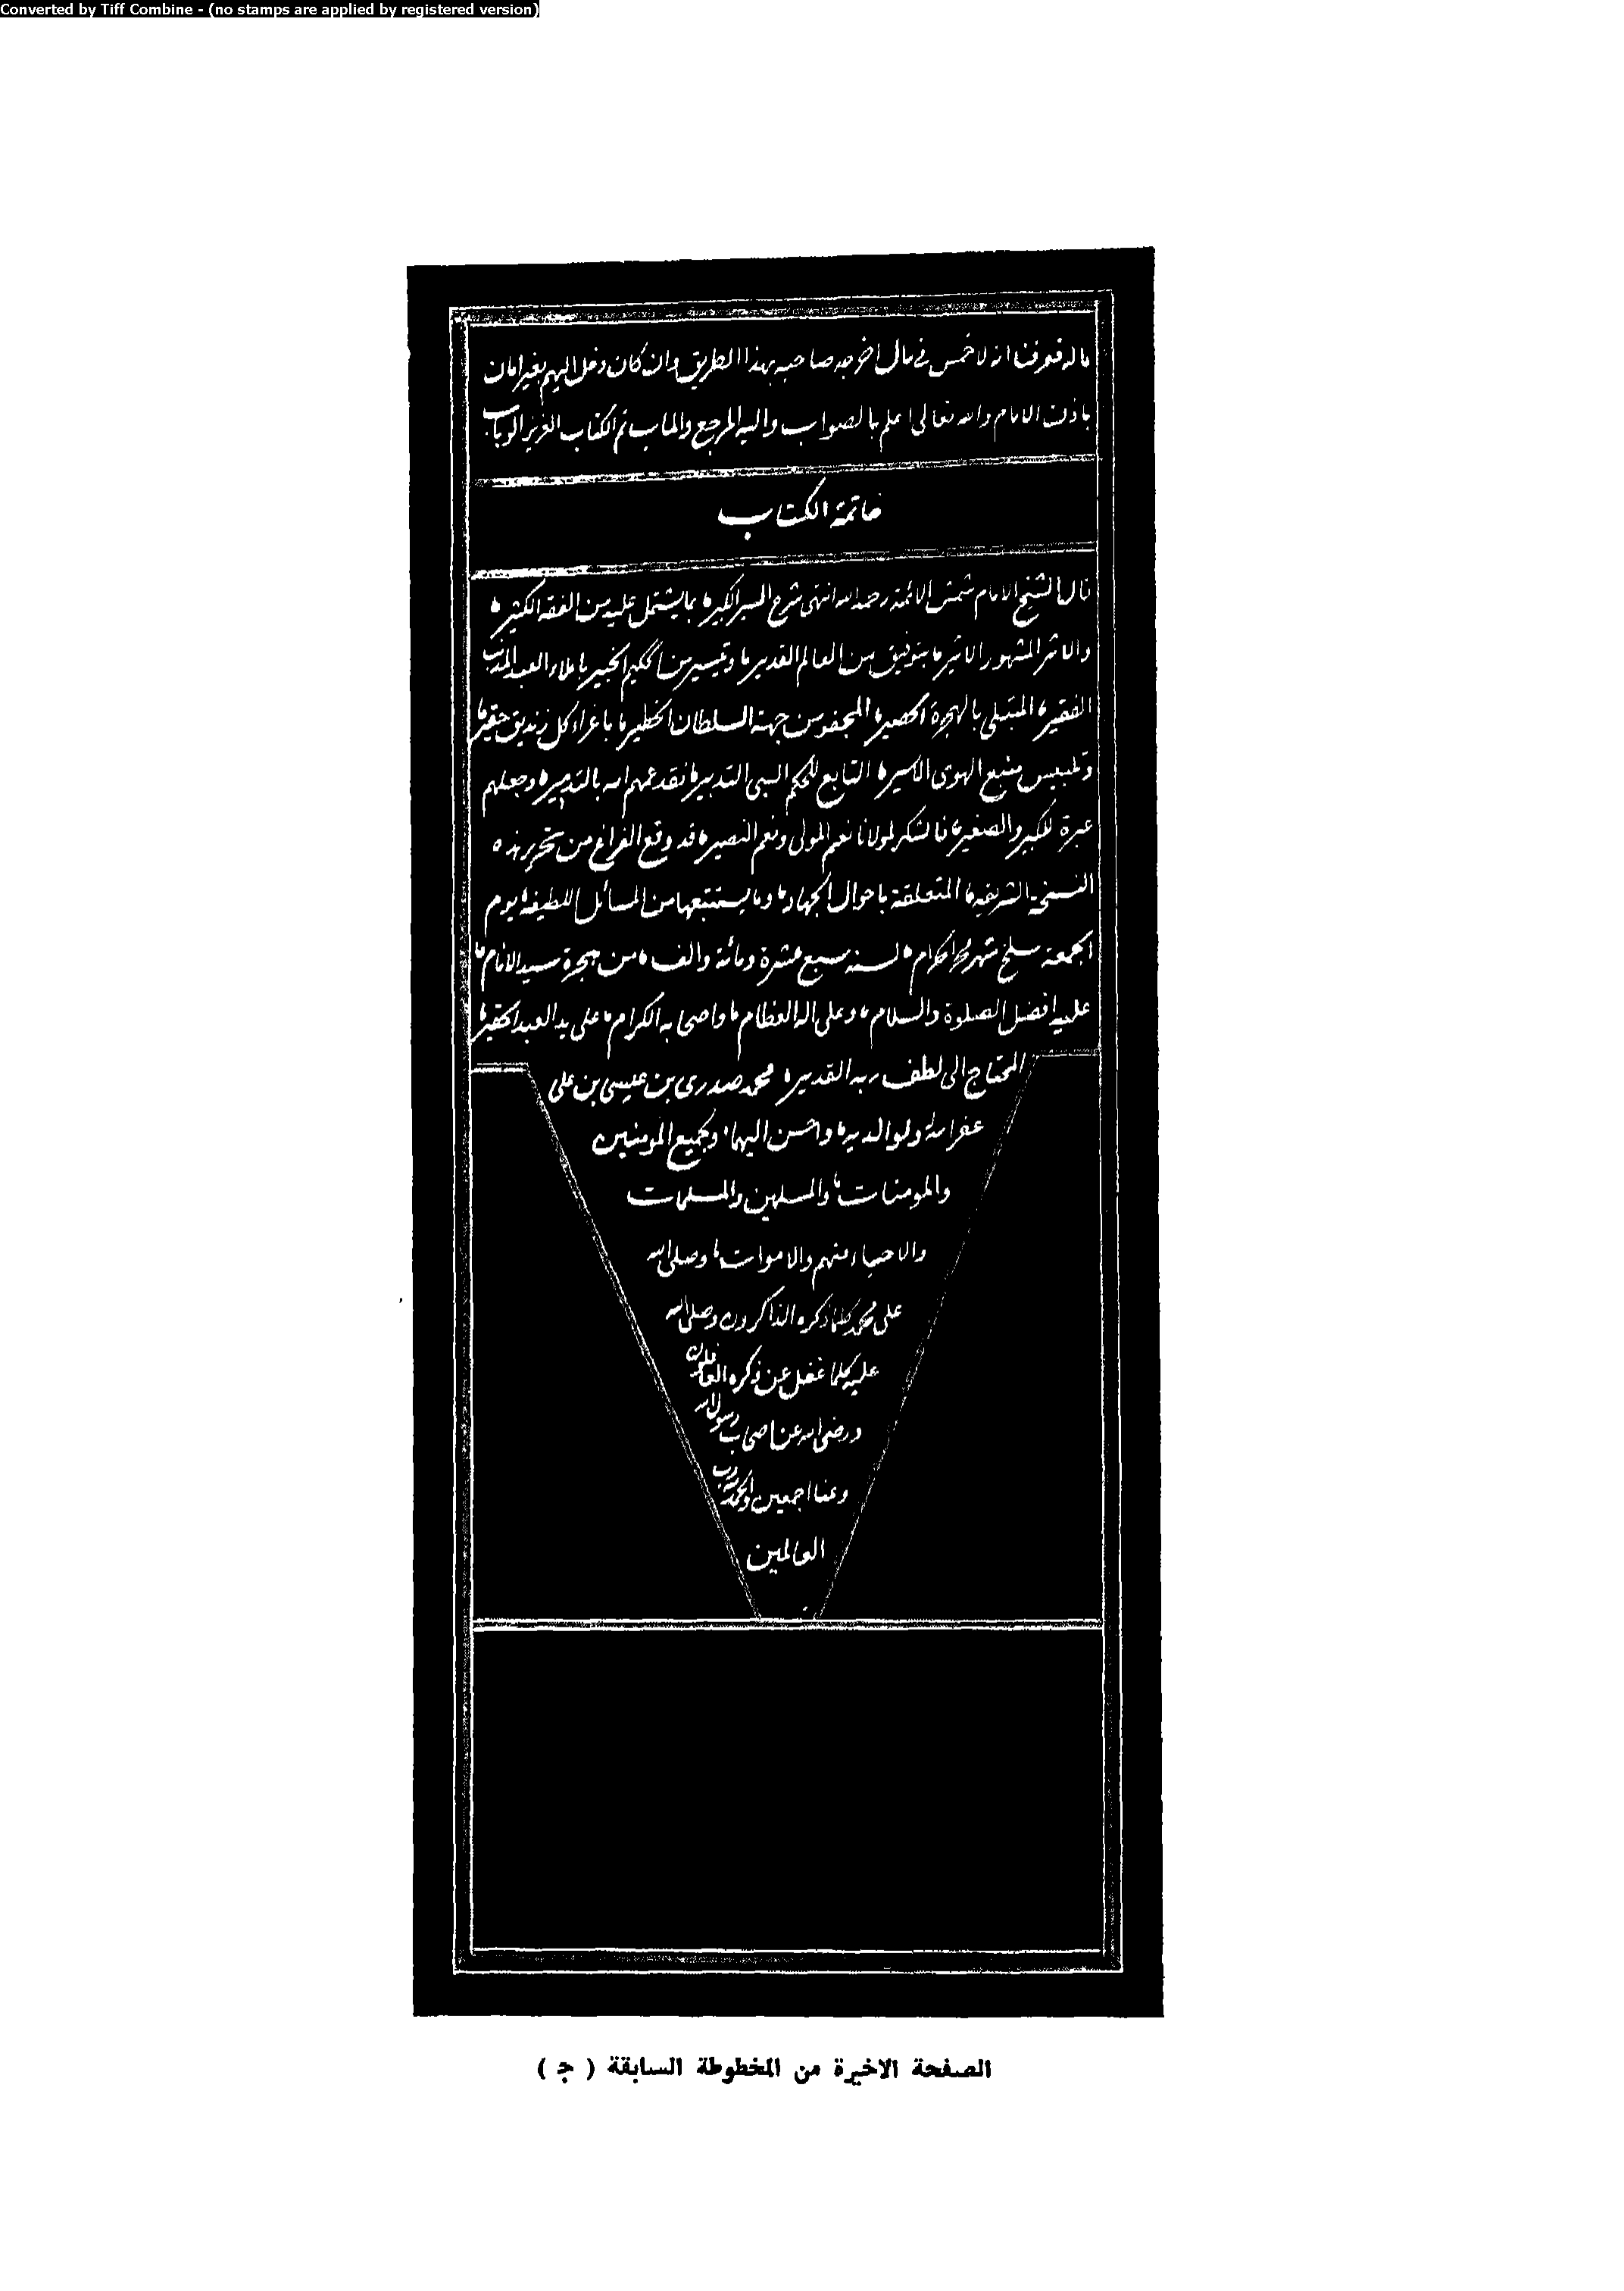 Converted by Tiff Combine - (no stamps are applied by registered version)
ماله فعرفنا انه لا خمس في مال اخرجه صاحبه بهذا الطريق وان كان دخل اليهم بغير امان
باذن الامام والله تعالى اعلم بالصواب واليه المرجع والماب تم الكتاب العزيز الوهاب
خاتمة الكتاب
قال الشيخ الامام شمس الائمة رحمه الله انتهى شرح السير الكبير بما يشتمل عليه من الفقه الكثير
والاثر المشهور الاثير بتوفيق من العالم القدير وتيسير من الحكيم الخبير باملاء العبد المذنب
الفقير المبتلى بالهجرة الحصير المجفو من جهة السلطان الخطير باغراء كل زنديق حقير
وتلبيس متبع الهوى الاسير التابع للحكم السيئ التدبير فقد عمهم الله بالتدمير وجعلهم
عبرة للكبير والصغير فالشكر لمولانا نعم المولى ونعم النصير قد وقع الفراغ من تحرير هذه
النسخة الشريفة المتعلقة باحوال الجهاد وما يستتبعها من المسائل اللطيفة يوم
الجمعة سلخ شهر محرم الحرام لسنة سبع عشرة ومائة والف من هجرة سيد الانام
عليه افضل الصلوة والسلام وعلى اله العظام واصحابه الكرام على يد العبد الحقير
المحتاج الى لطف ربه القدير محمد صدرى بن عيسى بن على
غفر له ولوالديه واحسن اليهما ولجميع المومنين
والمومنات والمسلمين والمسلمات
والاحياء منهم والاموات وصلى الله
على محمد كلما ذكره الذاكرون وصلى الله
عليه كلما غفل عن ذكره الغافلون
ورضى الله عن اصحاب رسول الله
وعنا اجمعين والحمد لله رب
العالمين
الصفحة الاخيرة من المخطوطة السابقة ( ج )